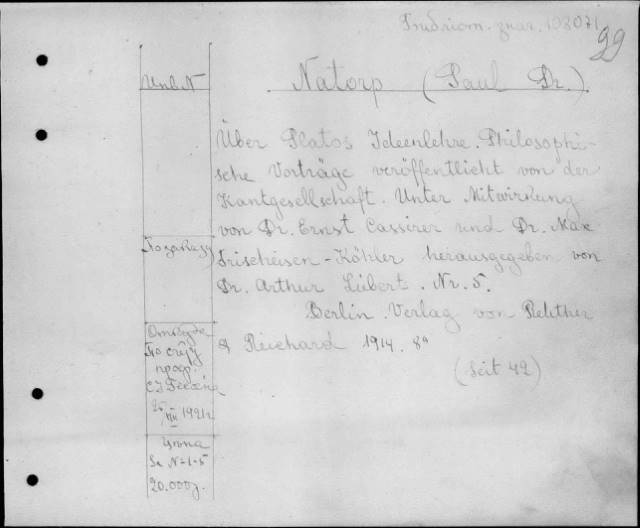 108071
99
Инв. №
Natorp (Paul Dr.)
Über Platos Ideenlehre. Philosophi-
sche Vorträge veröffentlicht von der
Kantgesellschaft. Unter Mitwirkung
von Dr. Ernst Cassirer und Dr. Max
Frischeisen-Köhler herausgegeben von
Dr. Arthur Liebert. Nr. 5.
Berlin. Verlag von Reuther
& Reichard 1914. 8º
(Seit 42)
По заказу
Откуда
По счёту
проф.
25/VII 1921 г
Цена
За № 1-5
20.000 р.